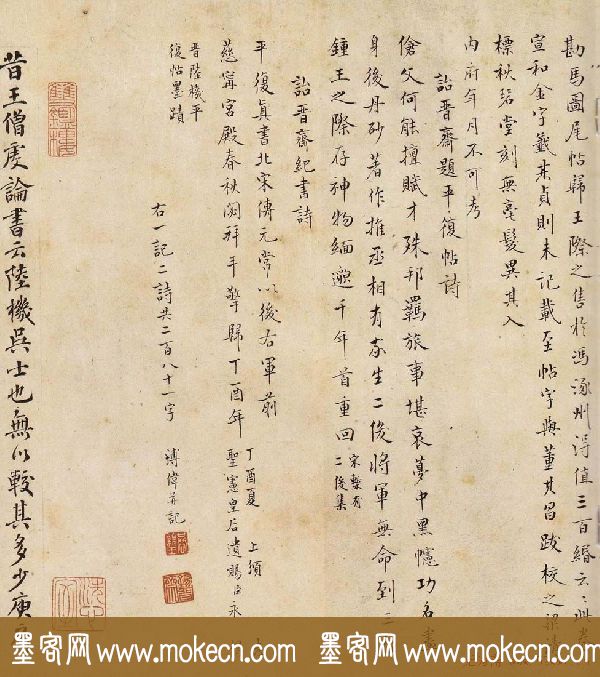 勘馬圖尾帖歸王際之售於馮涿州得值三百緡云云此卷
宣和金字籤某貞則未記載至帖字與董其昌跋校之梁清
標秋碧堂刻無毫髮異其入
內府年月不可考
詒晉齋題平復帖詩
傖父何能擅賦才殊邦羈旅事堪哀夢中黑幰功名盡
身後丹砂著作推丞相有孫生二俊將軍無命到三
鍾王之際存神物緬邈千年首重回宋槧有二俊集
詒晉齋紀書詩
平復真書北宋傳元常以後右軍前
慈甯宮殿春秋閟拜手擎歸丁酉年丁酉夏上頒
聖憲皇后遺賜臣永
晉陸機平
復帖墨蹟
右一記二詩共二百八十一字
溥偉並記
昔王僧虔論書云陸機吳士也無以較其多少庾
墨客网 www.mokecn.com
墨客网 www.mokecn.com